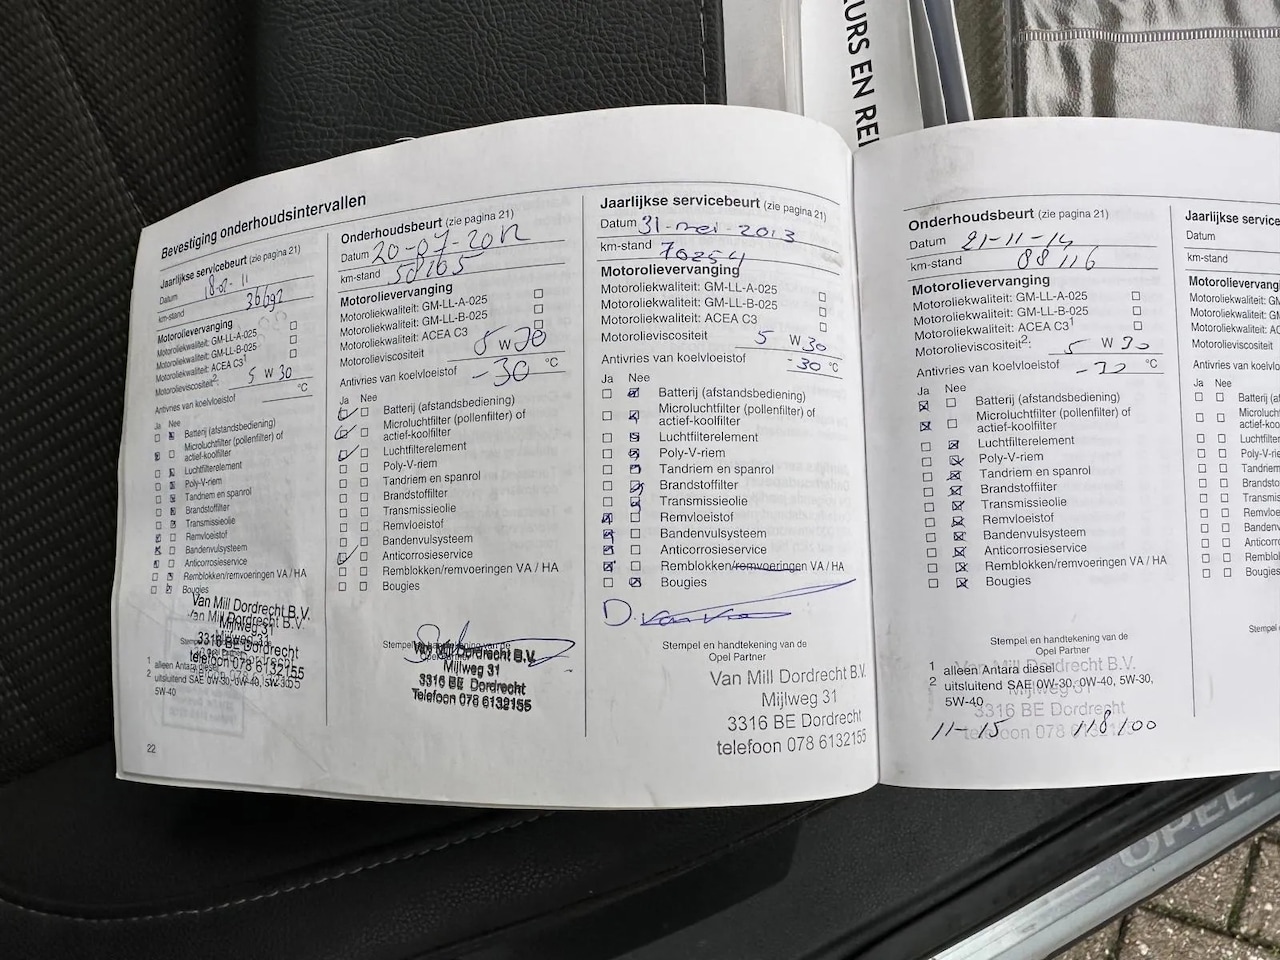 EURS EN REI
Bevestiging onderhoudsintervallen
Jaarlijkse servicebeurt (zie pagina 21)
Datum 18-02-11
km-stand 36692
Motorolievervanging
Motoroliekwaliteit: GM-LL-A-025
Motoroliekwaliteit: GM-LL-B-025
Motoroliekwaliteit: ACEA C3¹
Motorolieviscositeit²: 5 W 30
Antivries van koelvloeistof °C
Ja Nee
Batterij (afstandsbediening)
Microluchtfilter (pollenfilter) of
actief-koolfilter
Luchtfilterelement
Poly-V-riem
Tandriem en spanrol
Brandstoffilter
Transmissieolie
Remvloeistof
Bandenvulsysteem
Anticorrosieservice
Remblokken/remvoeringen VA / HA
Bougies
Van Mill Dordrecht B.V.
Mijlweg 31
3316 BE Dordrecht
telefoon 078 6132155
1 alleen Antara diesel
2 uitsluitend SAE 0W-30, 0W-40, 5W-30,
5W-40
22
Onderhoudsbeurt (zie pagina 21)
Datum 20-07-2012
km-stand 58165
Motorolievervanging
Motoroliekwaliteit: GM-LL-A-025
Motoroliekwaliteit: GM-LL-B-025
Motoroliekwaliteit: ACEA C3
Motorolieviscositeit 5 W 30
Antivries van koelvloeistof -30 °C
Ja Nee
Batterij (afstandsbediening)
Microluchtfilter (pollenfilter) of
actief-koolfilter
Luchtfilterelement
Poly-V-riem
Tandriem en spanrol
Brandstoffilter
Transmissieolie
Remvloeistof
Bandenvulsysteem
Anticorrosieservice
Remblokken/remvoeringen VA / HA
Bougies
Stempel en handtekening van de
Opel Partner
Van Mill Dordrecht B.V.
Mijlweg 31
3316 BE Dordrecht
Telefoon 078 6132155
Jaarlijkse servicebeurt (zie pagina 21)
Datum 31-mei-2013
km-stand 70254
Motorolievervanging
Motoroliekwaliteit: GM-LL-A-025
Motoroliekwaliteit: GM-LL-B-025
Motoroliekwaliteit: ACEA C3
Motorolieviscositeit 5 W 30
Antivries van koelvloeistof -30 °C
Ja Nee
Batterij (afstandsbediening)
Microluchtfilter (pollenfilter) of
actief-koolfilter
Luchtfilterelement
Poly-V-riem
Tandriem en spanrol
Brandstoffilter
Transmissieolie
Remvloeistof
Bandenvulsysteem
Anticorrosieservice
Remblokken/remvoeringen VA / HA
Bougies
Stempel en handtekening van de
Opel Partner
Van Mill Dordrecht B.V.
Mijlweg 31
3316 BE Dordrecht
telefoon 078 6132155
Onderhoudsbeurt (zie pagina 21)
Datum 21-11-14
km-stand 88116
Motorolievervanging
Motoroliekwaliteit: GM-LL-A-025
Motoroliekwaliteit: GM-LL-B-025
Motoroliekwaliteit: ACEA C3¹
Motorolieviscositeit²: 5 W 30
Antivries van koelvloeistof -30 °C
Ja Nee
Batterij (afstandsbediening)
Microluchtfilter (pollenfilter) of
actief-koolfilter
Luchtfilterelement
Poly-V-riem
Tandriem en spanrol
Brandstoffilter
Transmissieolie
Remvloeistof
Bandenvulsysteem
Anticorrosieservice
Remblokken/remvoeringen VA / HA
Bougies
Stempel en handtekening van de
Opel Partner
Van Mill Dordrecht B.V.
Mijlweg 31
3316 BE Dordrecht
telefoon 078 6132155
1 alleen Antara diesel
2 uitsluitend SAE 0W-30, 0W-40, 5W-30,
5W-40
11-15 118100
Jaarlijkse service
Datum
km-stand
Motorolievervang
Motoroliekwaliteit: GM
Motoroliekwaliteit: GM
Motoroliekwaliteit: AC
Motorolieviscositeit
Antivries van koelvloe
Ja Nee
Batterij (afs
Microluchtf
actief-koolf
Luchtfilter
Poly-V-rie
Tandriem
Brandsto
Transmis
Remvloe
Bandenv
Anticorr
Remblo
Bougies
Stempel
OPEL